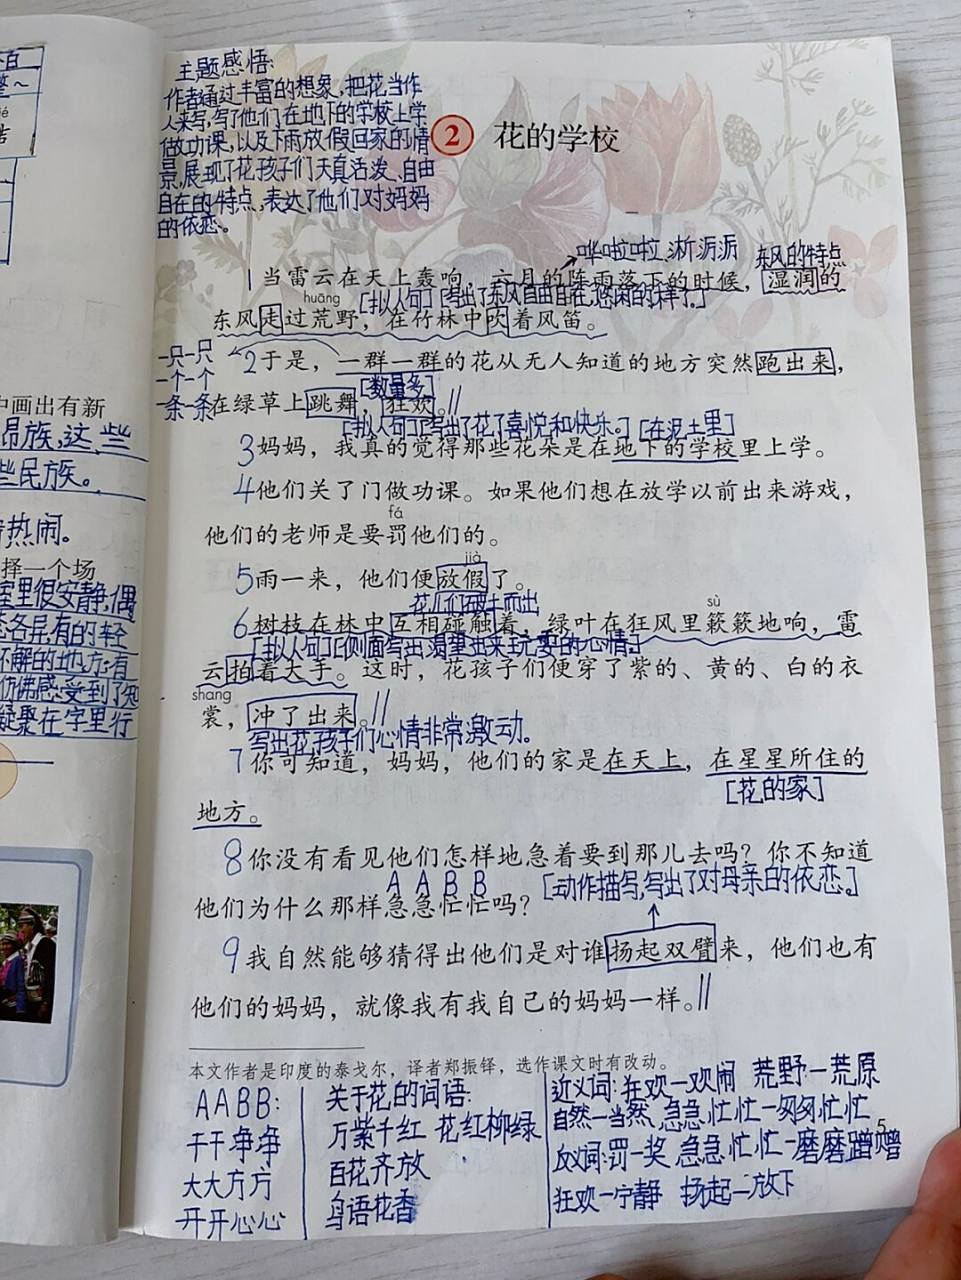 主题感悟:
作者通过丰富的想象,把花当作
人来写,写了他们在地下的学校上学
做功课,以及下雨放假回家的情
景,展现了花孩子们天真活泼、自由
自在的特点,表达了他们对妈妈
的依恋。
2 花的学校
哗啦啦 淅沥沥
东风的特点
1 当雷云在天上轰响,六月的阵雨落下的时候,湿润的
huāng
[拟人句][写出了东风自由自在,悠闲的样子。]
东风走过荒野,在竹林中吹着风笛。
一只一只
一个一个
一条一条
2 于是,一群一群的花从无人知道的地方突然跑出来,
[数量多]
在绿草上跳舞,狂欢。//
[拟人句][写出了花了喜悦和快乐。] [在泥土里]
3 妈妈,我真的觉得那些花朵是在地下的学校里上学。
4 他们关了门做功课。如果他们想在放学以前出来游戏,
fá
他们的老师是要罚他们的。
jià
5 雨一来,他们便放假了。
花儿们破土而出
sù
6 树枝在林中互相碰触着,绿叶在狂风里簌簌地响,雷
[拟人句][侧面写出渴望出来玩耍的心情。]
云拍着大手。这时,花孩子们便穿了紫的、黄的、白的衣
shang
裳,冲了出来。//
写出花孩子们心情非常激动。
7 你可知道,妈妈,他们的家是在天上,在星星所住的
[花的家]
地方。
8 你没有看见他们怎样地急着要到那儿去吗?你不知道
A A B B
[动作描写,写出了对母亲的依恋。]
他们为什么那样急急忙忙吗?
9 我自然能够猜得出他们是对谁扬起双臂来,他们也有
他们的妈妈,就像我有我自己的妈妈一样。//
本文作者是印度的泰戈尔,译者郑振铎,选作课文时有改动。
AABB:
干干净净
大大方方
开开心心
关于花的词语:
万紫千红 花红柳绿
百花齐放
鸟语花香
近义词:狂欢—欢闹 荒野—荒原
自然—当然 急急忙忙—匆匆忙忙
反义词:罚—奖 急急忙忙—磨磨蹭蹭
狂欢—宁静 扬起—放下
5
中画出有新
昂族,这些
些民族。
热闹。
择一个场
室里很安静,偶
态各异,有的轻
不解的地方;有
仿佛感受到了知
凝聚在字里行